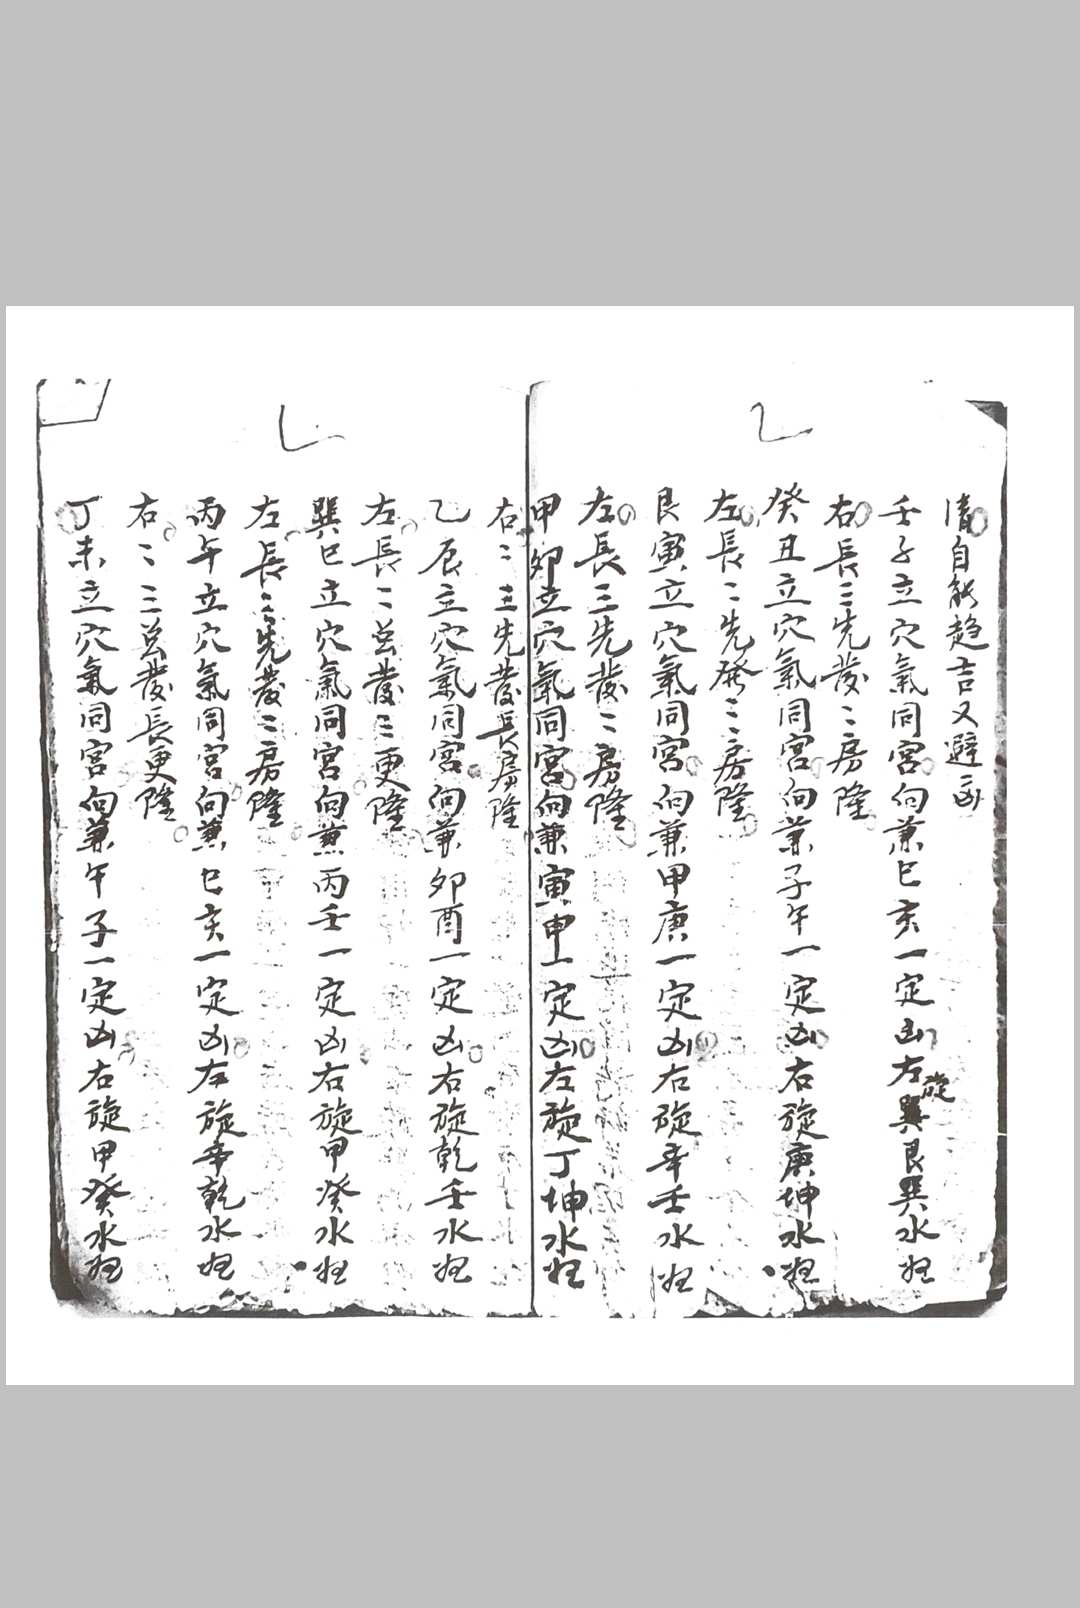 清自能趋吉又避凶
壬子立穴氣同宮向兼巳亥一定凶左旋巽艮巽水
右長三先發二房隆
癸丑立穴氣同宮向兼子午一定凶右旋庚坤水
左長二先發三房隆
艮寅立穴氣同宮向兼甲庚一定凶右旋辛壬水
左長三先發二房隆
甲卯立穴氣同宮向兼寅申一定凶左旋丁坤水
右二三先發長房隆
乙辰立穴氣同宮向兼卯酉一定凶右旋乾壬水
左長二並發三更隆
巽巳立穴氣同宮向兼丙壬一定凶右旋甲癸水
左長三先發二房隆
丙午立穴氣同宮向兼巳亥一定凶左旋辛乾水
右二三並發長更隆
丁未立穴氣同宮向兼午子一定凶右旋甲癸水